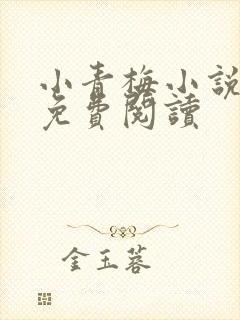 小青梅小說
免費閱讀
金玉蓉